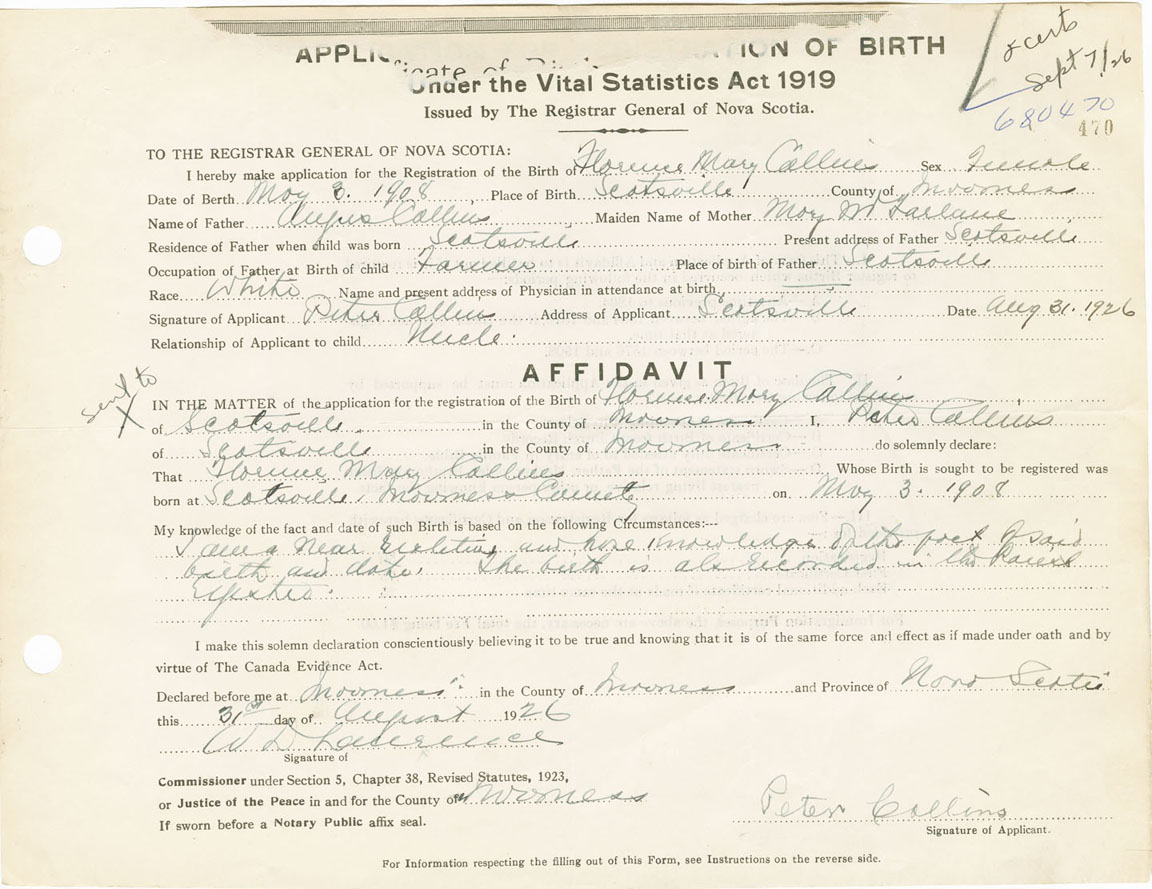 APPLIC ATION OF BIRTH
icate of Birth
Under the Vital Statistics Act 1919
Issued by The Registrar General of Nova Scotia.
2 certs
Sept 7/26
680470
470
TO THE REGISTRAR GENERAL OF NOVA SCOTIA:
I hereby make application for the Registration of the Birth of Florence Mary Collins Sex Female
Date of Berth May 3. 1908 Place of Birth Scotsville County of Inverness
Name of Father Angus Collins Maiden Name of Mother Mary McFarlane
Residence of Father when child was born Scotsville Present address of Father Scotsville
Occupation of Father at Birth of child Farmer Place of birth of Father Scotsville
Race White Name and present address of Physician in attendance at birth
Signature of Applicant Peter Collins Address of Applicant Scotsville Date Aug 31. 1926
Relationship of Applicant to child Uncle.
AFFIDAVIT
Sent to
X
IN THE MATTER of the application for the registration of the Birth of Florence Mary Collins
of Scotsville in the County of Inverness I, Peter Collins
of Scotsville in the County of Inverness do solemnly declare:
That Florence Mary Collins Whose Birth is sought to be registered was
born at Scotsville, Inverness County on May 3. 1908
My knowledge of the fact and date of such Birth is based on the following Circumstances:---
I am a near relative and have knowledge of the fact of said
birth and date. The birth is also recorded in the Parish
Register.
I make this solemn declaration conscientiously believing it to be true and knowing that it is of the same force and effect as if made under oath and by
virtue of The Canada Evidence Act.
Declared before me at Inverness in the County of Inverness and Province of Nova Scotia
this 31st day of August 1926
W D Lawrence
Signature of
Commissioner under Section 5, Chapter 38, Revised Statutes, 1923,
or Justice of the Peace in and for the County of Inverness
If sworn before a Notary Public affix seal.
Peter Collins
Signature of Applicant.
For Information respecting the filling out of this Form, see Instructions on the reverse side.